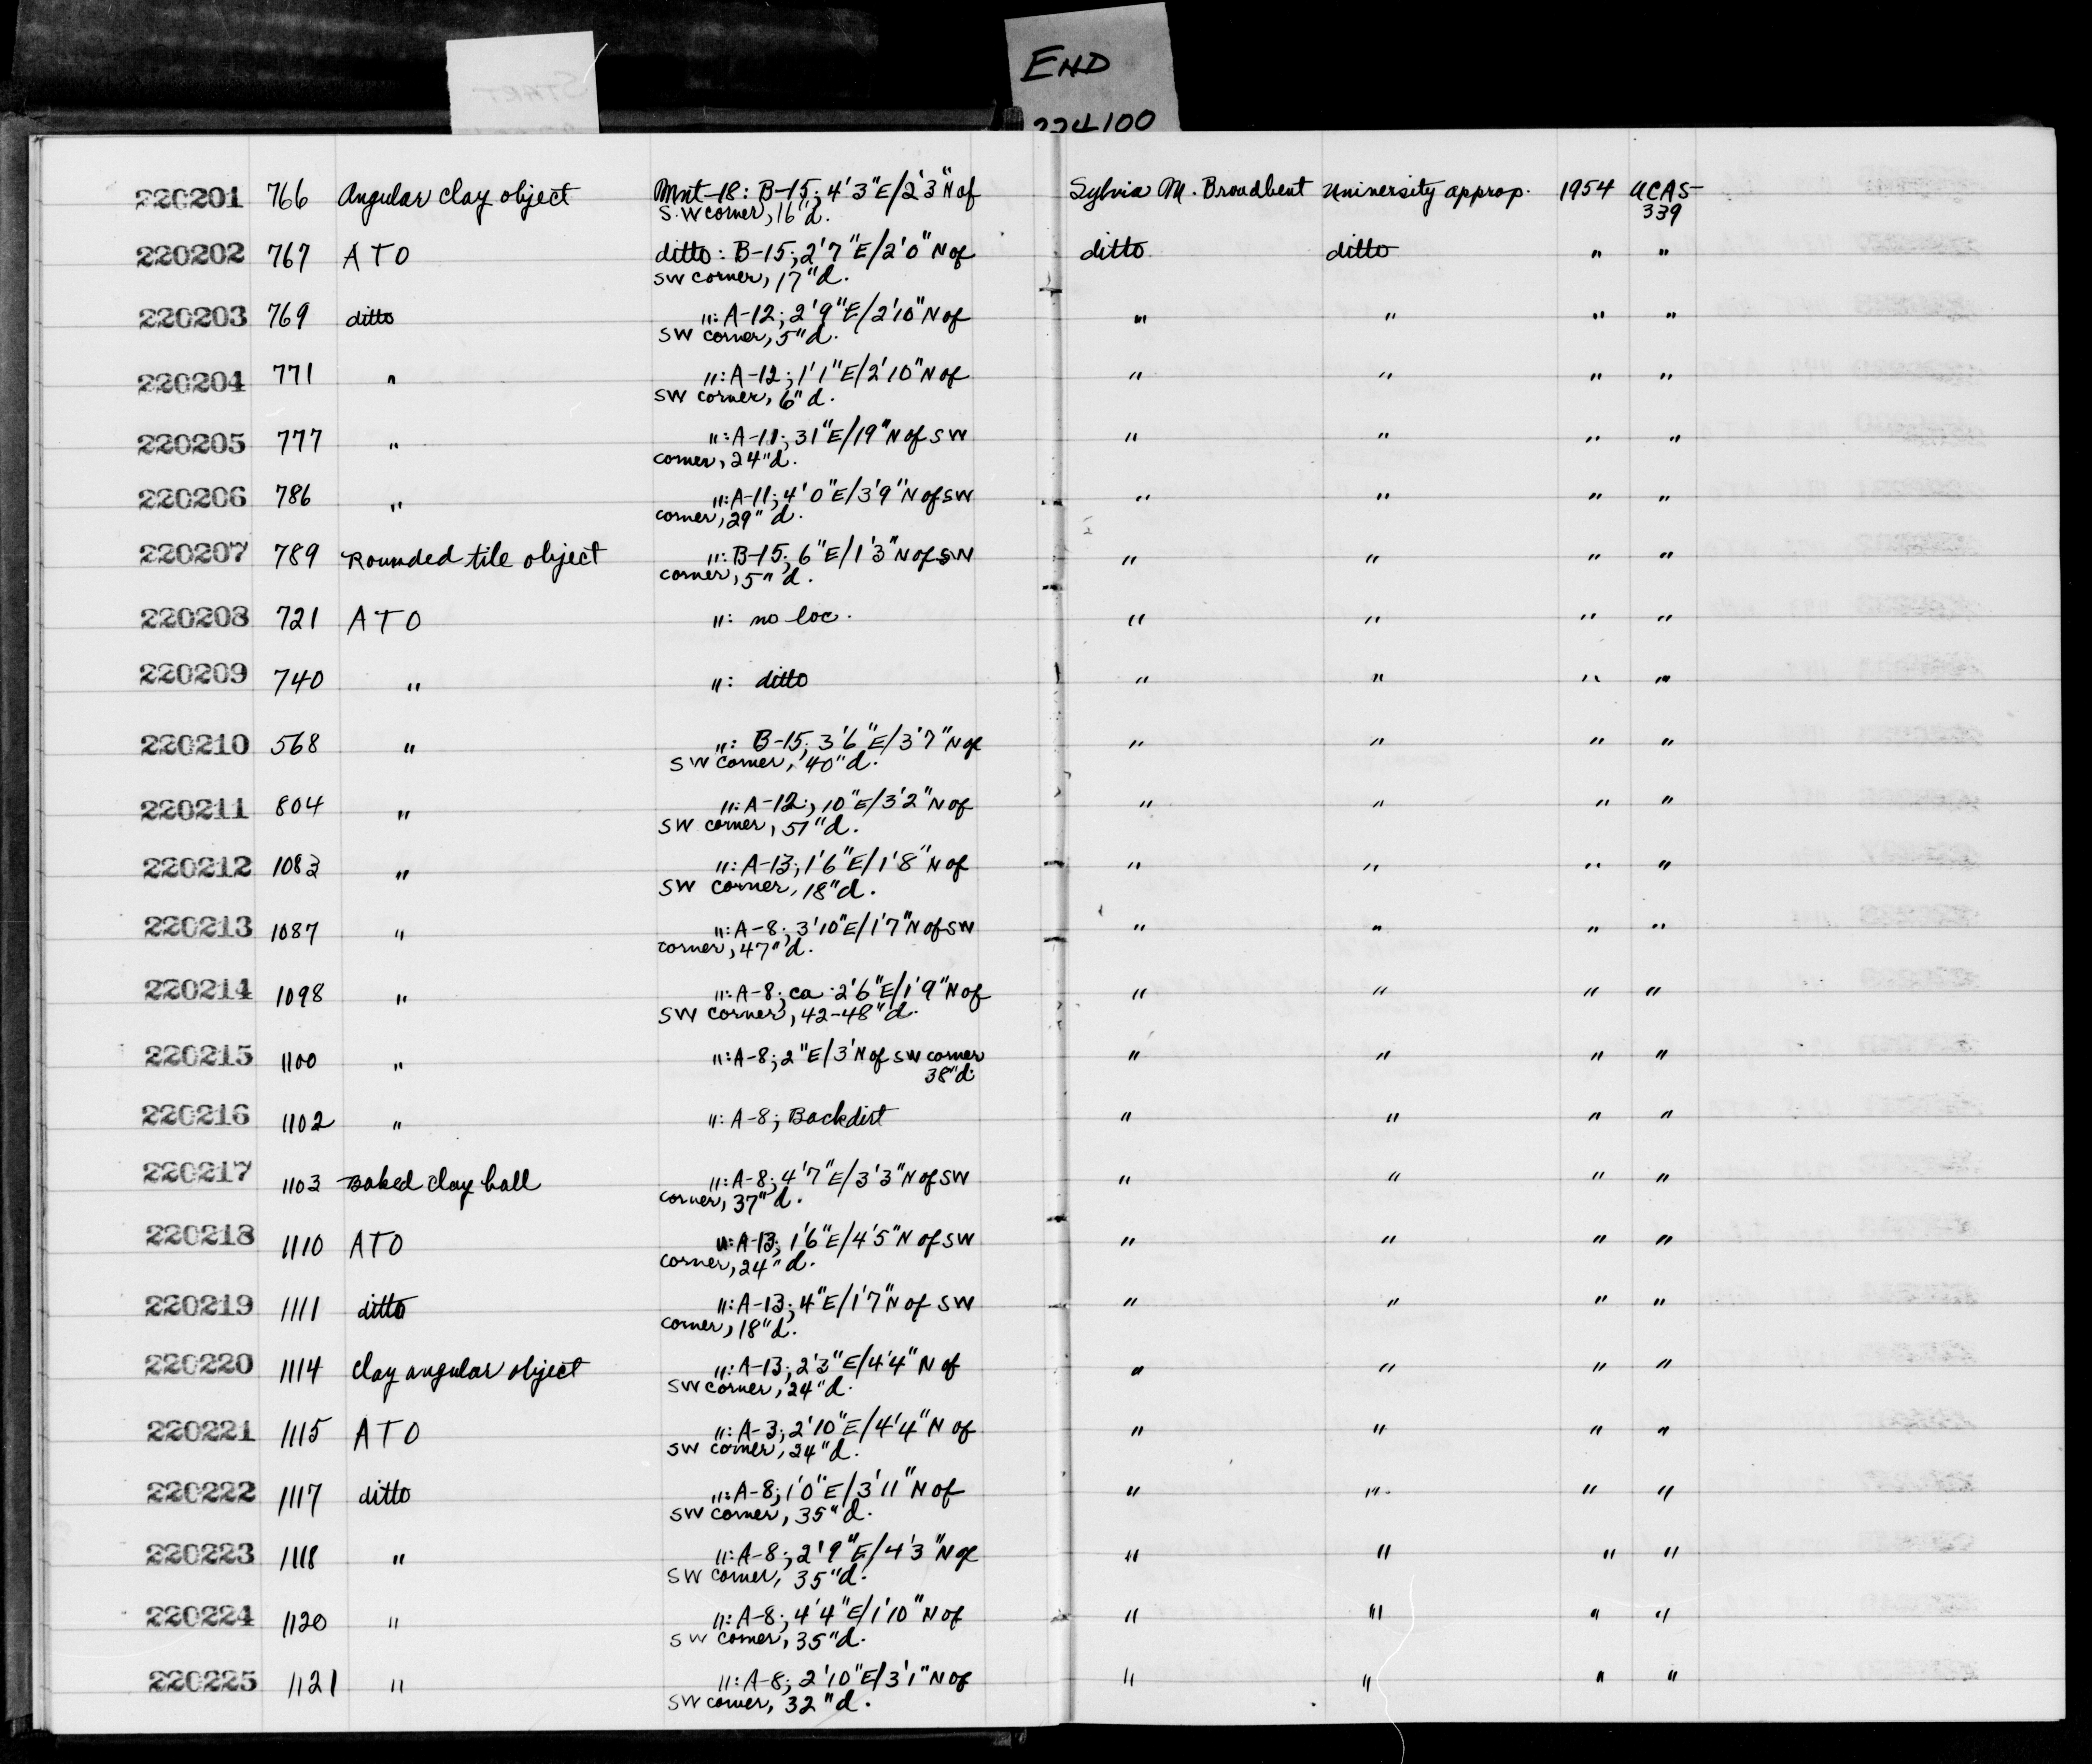 END
224100
220201 766 Angular clay object Mnt-18: B-15; 4'3"E/2'3"N of Sylvia M. Broadbent University approp. 1954 UCAS-
S.W corner, 16"d. 339
220202 767 ATO ditto: B-15; 2'7"E/2'0"N of ditto ditto " "
SW corner, 17"d.
220203 769 ditto ": A-12; 2'9"E/2'10"N of " " " "
SW corner, 5"d.
220204 771 " ": A-12; 1'1"E/2'10"N of " " " "
SW corner, 6"d.
220205 777 " ": A-11; 31"E/19"N of SW " " " "
corner, 24"d.
220206 786 " ": A-11; 4'0"E/3'9"N of SW " " " "
corner, 29"d.
220207 789 Rounded tile object ": B-15; 6"E/1'3"N of SW " " " "
corner, 5"d.
220208 721 ATO ": no loc. " " " "
220209 740 " ": ditto " " " "
220210 568 " ": B-15; 3'6"E/3'7"N of " " " "
SW corner, 40"d.
220211 804 " ": A-12; 10"E/3'2"N of " " " "
SW corner, 51"d.
220212 1083 " ": A-13; 1'6"E/1'8"N of " " " "
SW corner, 18"d.
220213 1087 " ": A-8; 3'10"E/1'7"N of SW " " " "
corner, 47"d.
220214 1098 " ": A-8; ca 2'6"E/1'9"N of " " " "
SW corner, 42-48"d.
220215 1100 " ": A-8; 2"E/3'N of SW corner " " " "
38"d.
220216 1102 " ": A-8; Backdirt " " " "
220217 1103 Baked clay ball ": A-8; 4'7"E/3'3"N of SW " " " "
corner, 37"d.
220218 1110 ATO ": A-13; 1'6"E/4'5"N of SW " " " "
corner, 24"d.
220219 1111 ditto ": A-13; 4"E/1'7"N of SW " " " "
corner, 18"d.
220220 1114 Clay angular object ": A-13; 2'3"E/4'4"N of " " " "
SW corner, 24"d.
220221 1115 ATO ": A-3; 2'10"E/4'4"N of " " " "
SW corner, 24"d.
220222 1117 ditto ": A-8; 1'0"E/3'11"N of " " " "
SW corner, 35"d.
220223 1118 " ": A-8; 2'9"E/4'3"N of " " " "
SW corner, 35"d.
220224 1120 " ": A-8; 4'4"E/1'10"N of " " " "
SW corner, 35"d.
220225 1121 " ": A-8; 2'10"E/3'1"N of " " " "
SW corner, 32"d.